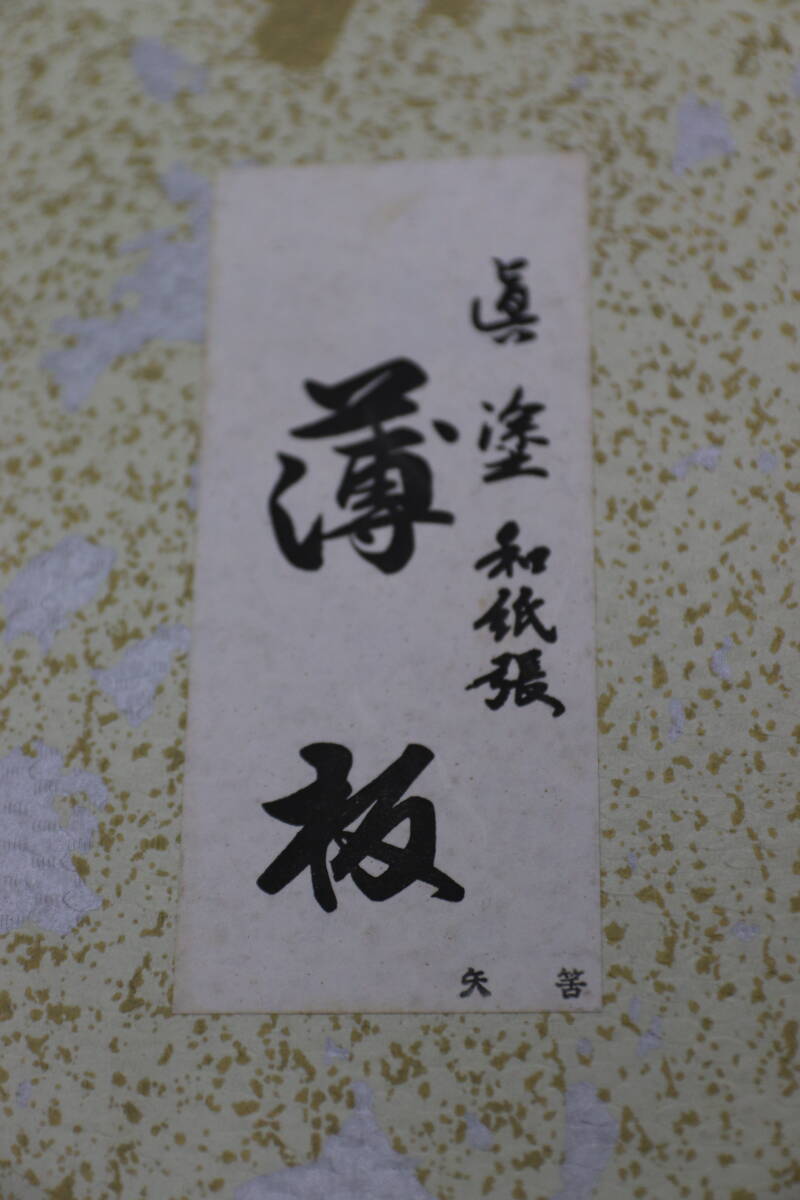 眞塗和紙張
薄板
矢筈